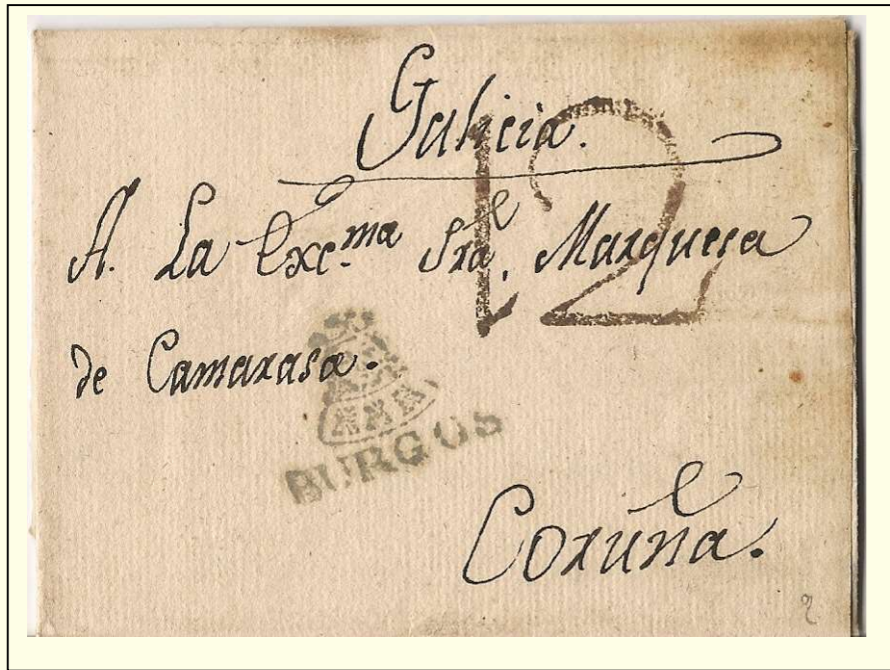 Galicia.
12
A. La Exc.ma Sra. Marquesa
de Camarasa.
BURGOS
Coruña.
2